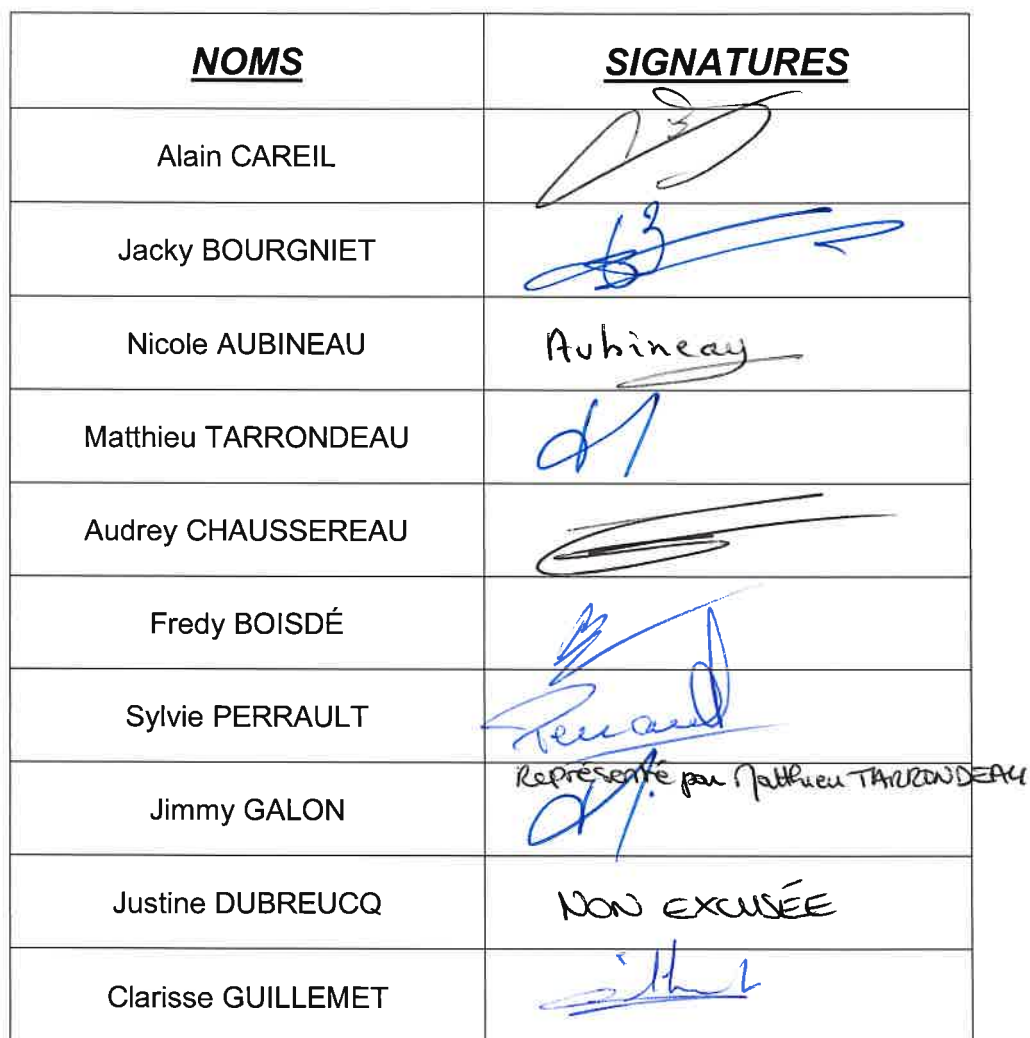 NOMS SIGNATURES
Alain CAREIL
Jacky BOURGNIET
Nicole AUBINEAU Aubineau
Matthieu TARRONDEAU
Audrey CHAUSSEREAU
Fredy BOISDÉ
Sylvie PERRAULT
Représenté par Matthieu TARRONDEAU
Jimmy GALON
Justine DUBREUCQ NON EXCUSÉE
Clarisse GUILLEMET